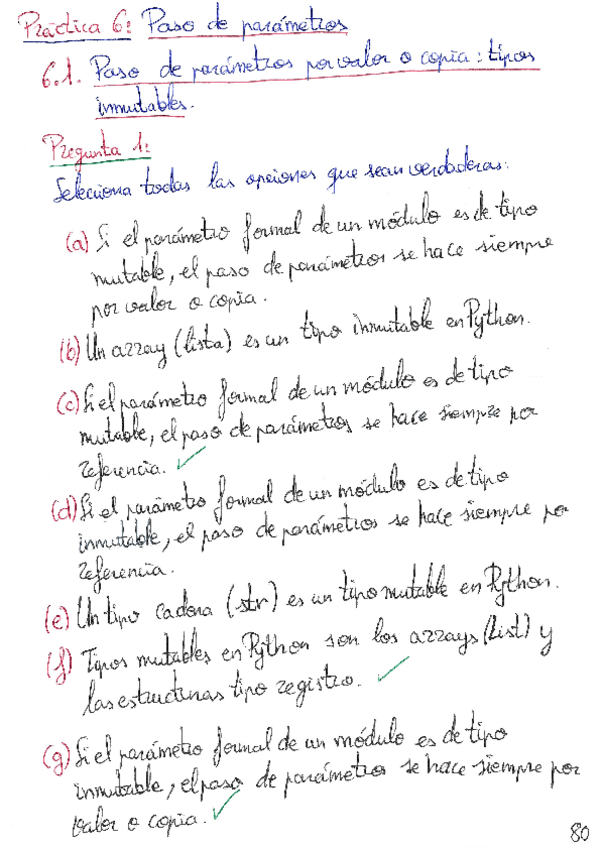 Práctica 6: Paso de parámetros
6.1. Paso de parámetros por valor o copia: tipos
inmutables.
Pregunta 1:
Selecciona todas las opciones que sean verdaderas:
(a) Si el parámetro formal de un módulo es de tipo
mutable, el paso de parámetros se hace siempre
por valor o copia.
(b) Un array (lista) es un tipo inmutable en Python.
(c) Si el parámetro formal de un módulo es de tipo
mutable, el paso de parámetros se hace siempre por
referencia. ✓
(d) Si el parámetro formal de un módulo es de tipo
inmutable, el paso de parámetros se hace siempre por
referencia.
(e) Un tipo cadena (str) es un tipo mutable en Python.
(f) Tipos mutables en Python son los arrays (list) y
las estructuras tipo registro. ✓
(g) Si el parámetro formal de un módulo es de tipo
inmutable, el paso de parámetros se hace siempre por
valor o copia. ✓
80